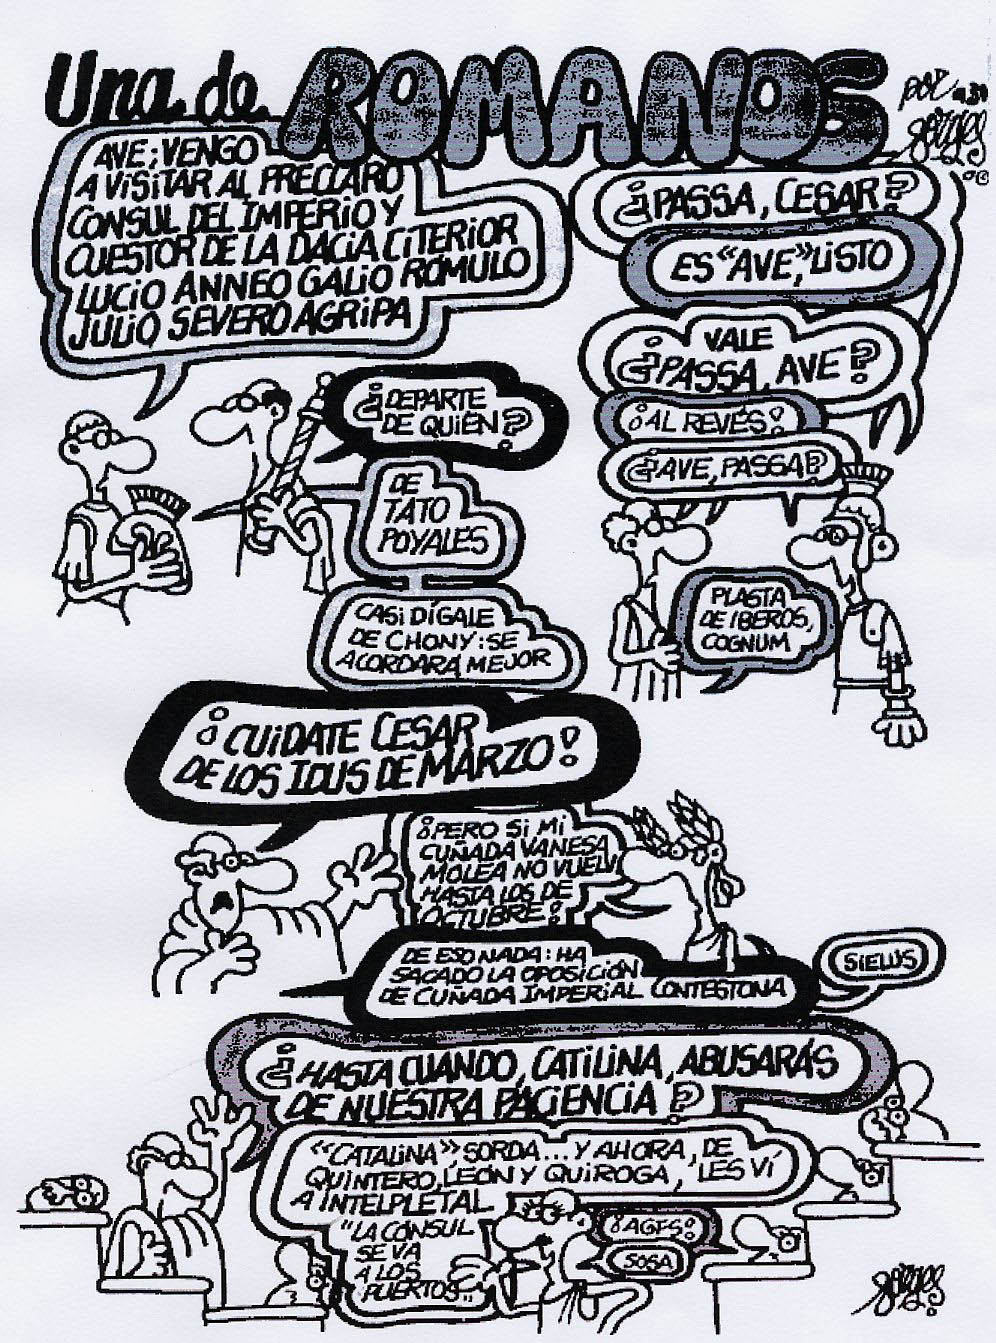 Una de ROMANOS
por
forges
AVE; VENGO
A VISITAR AL PRECLARO
CONSUL DEL IMPERIO Y
CUESTOR DE LA DACIA CITERIOR
LUCIO ANNEO GALIO RÓMULO
JULIO SEVERO AGRIPA
¿DEPARTE
DE QUIÉN?
DE
TATO
POYALES
CASI DÍGALE
DE CHONY: SE
ACORDARÁ MEJOR
¿PASSA, CESAR?
ES "AVE", LISTO
VALE
¿PASSA, AVE?
¡AL REVÉS!
¿AVE, PASSA?
PLASTA
DE IBEROS,
COGNUM
¡CUIDATE CESAR
DE LOS IDUS DE MARZO!
¡PERO SI MI
CUÑADA VANESA
MOLEA NO VUELV
HASTA LOS DE
OCTUBRE!
DE ESO NADA: HA
SACADO LA OPOSICIÓN
DE CUÑADA IMPERIAL CONTESTONA
SIELUS
¿HASTA CUANDO, CATILINA, ABUSARÁS
DE NUESTRA PACIENCIA?
"CATALINA" SORDA... Y AHORA, DE
QUINTERO, LEÓN Y QUIROGA, LES VÍ
A INTELPLETAL
"LA CONSUL
SE VA
A LOS
PUERTOS...
¡AGFS!
SOSA
forges